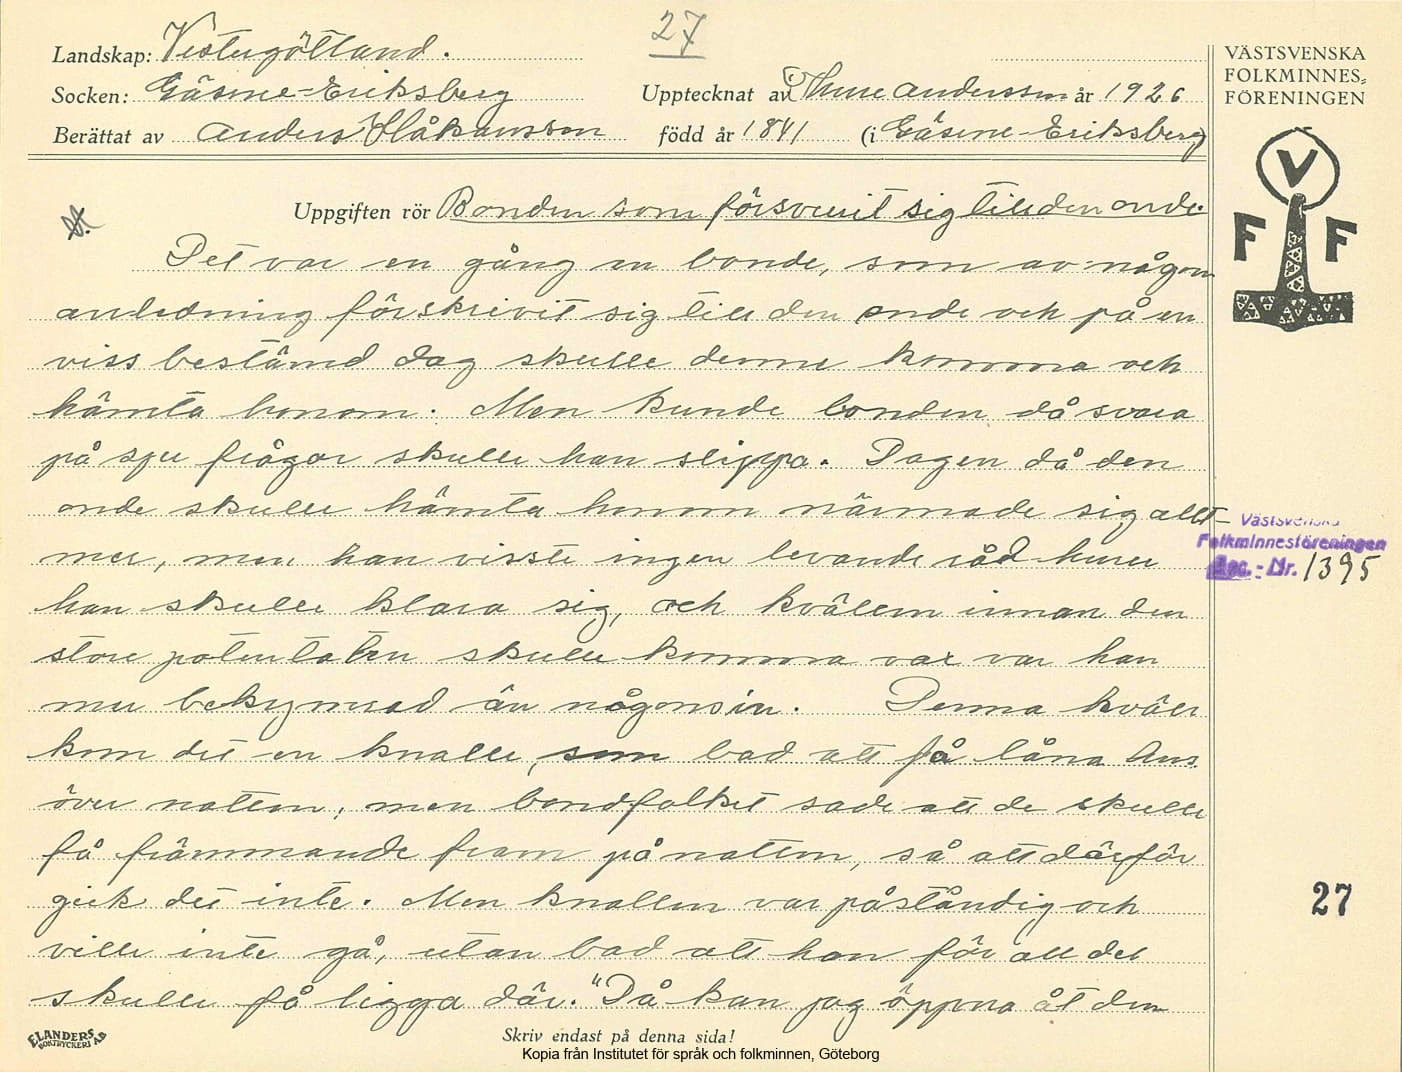 27
Landskap: Vestergötland.
Socken: Gäsene-Eriksberg
Upptecknat av Thure Andersson år 1926
Berättat av Anders Håkansson född år 1841 (i Gäsene-Eriksberg)
VÄSTSVENSKA
FOLKMINNES-
FÖRENINGEN
V
F F
Uppgiften rör Bonden som försvurit sig till den onde.
Det var en gång en bonde, som av någon
anledning förskrivit sig till den onde och på en
viss bestämd dag skulle denne komma och
hämta honom. Men kunde bonden då svara
på sju frågor skulle han slippa. Dagen då den
onde skulle hämta honom närmade sig allt-
mer, men han visste ingen levande råd huru
han skulle klara sig, och kvällen innan den
store potentaten skulle komma var var han
mer bekymrad än någonsin. Denna kväll
kom det en knalle, som bad att få låna hus
över natten, men bondfolket sade att de skulle
få främmande fram på natten, så att därför
gick det inte. Men knallen var påståndig och
ville inte gå, utan bad att han för all del
skulle få ligga där. "Då kan jag öppna åt den
Västsvenska
Folkminnesföreningen
Acc.-Nr. 1395
27
ELANDERS
BOKTRYCKERI AB
Skriv endast på denna sida!
Kopia från Institutet för språk och folkminnen, Göteborg